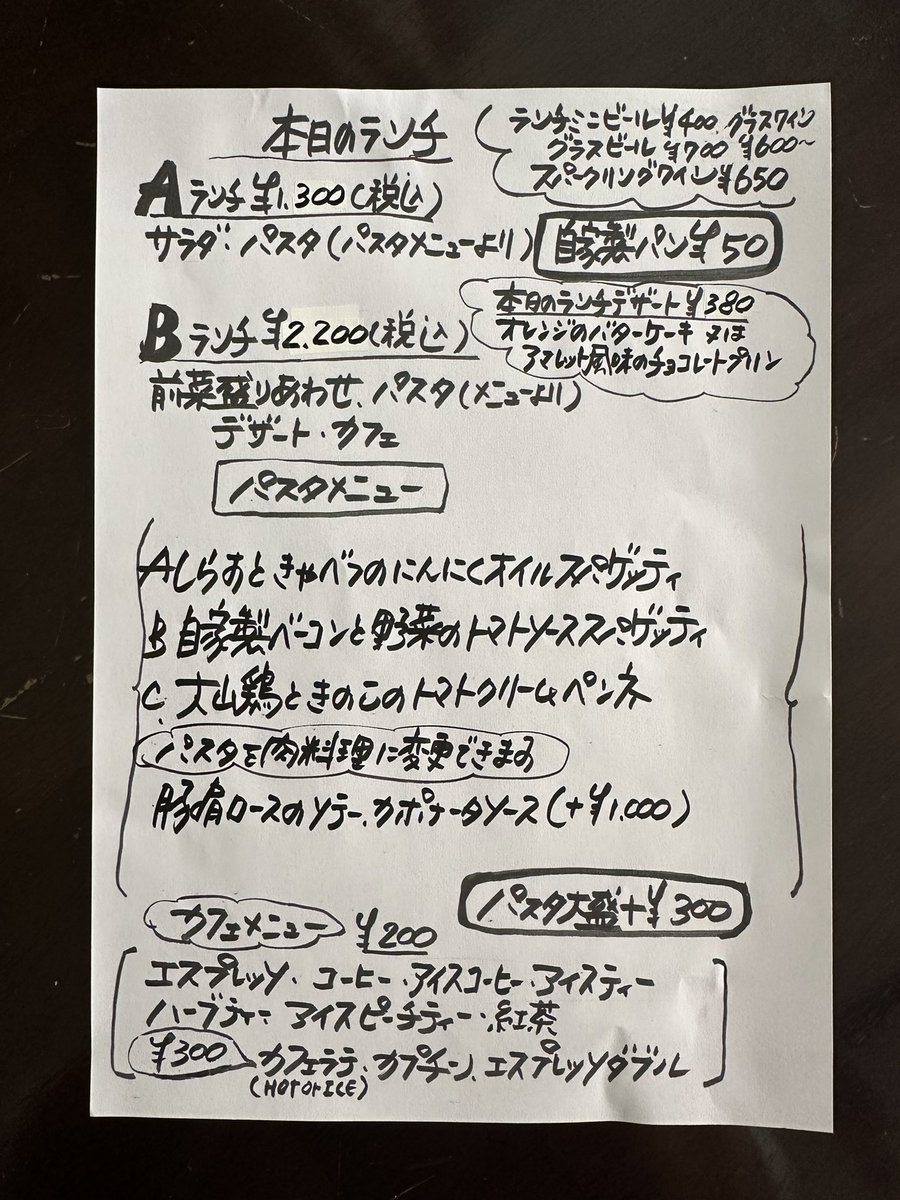 本日のランチ
ランチミニビール¥400 グラスワイン
グラスビール ¥700 ¥600〜
スパークリングワイン¥650
Aランチ ¥1,300(税込)
サラダ・パスタ(パスタメニューより)
自家製パン¥50
本日のランチデザート¥380
オレンジのバターケーキ又は
アマレット風味のチョコレートプリン
Bランチ¥2,200(税込)
前菜盛りあわせ、パスタ(メニューより)
デザート・カフェ
パスタメニュー
Aしらすときゃべつのにんにくオイルスパゲッティ
B 自家製ベーコンと野菜のトマトソーススパゲッティ
C. 大山鶏ときのこのトマトクリームペンネ
パスタを肉料理に変更できます
豚肩ロースのソテー、カポナータソース(+¥1,000)
パスタ大盛+¥300
カフェメニュー ¥200
エスプレッソ・コーヒー・アイスコーヒー・アイスティー
ハーブティー・アイスピーチティー・紅茶
¥300 カフェラテ・カプチーノ、エスプレッソダブル
(HOT or ICE)